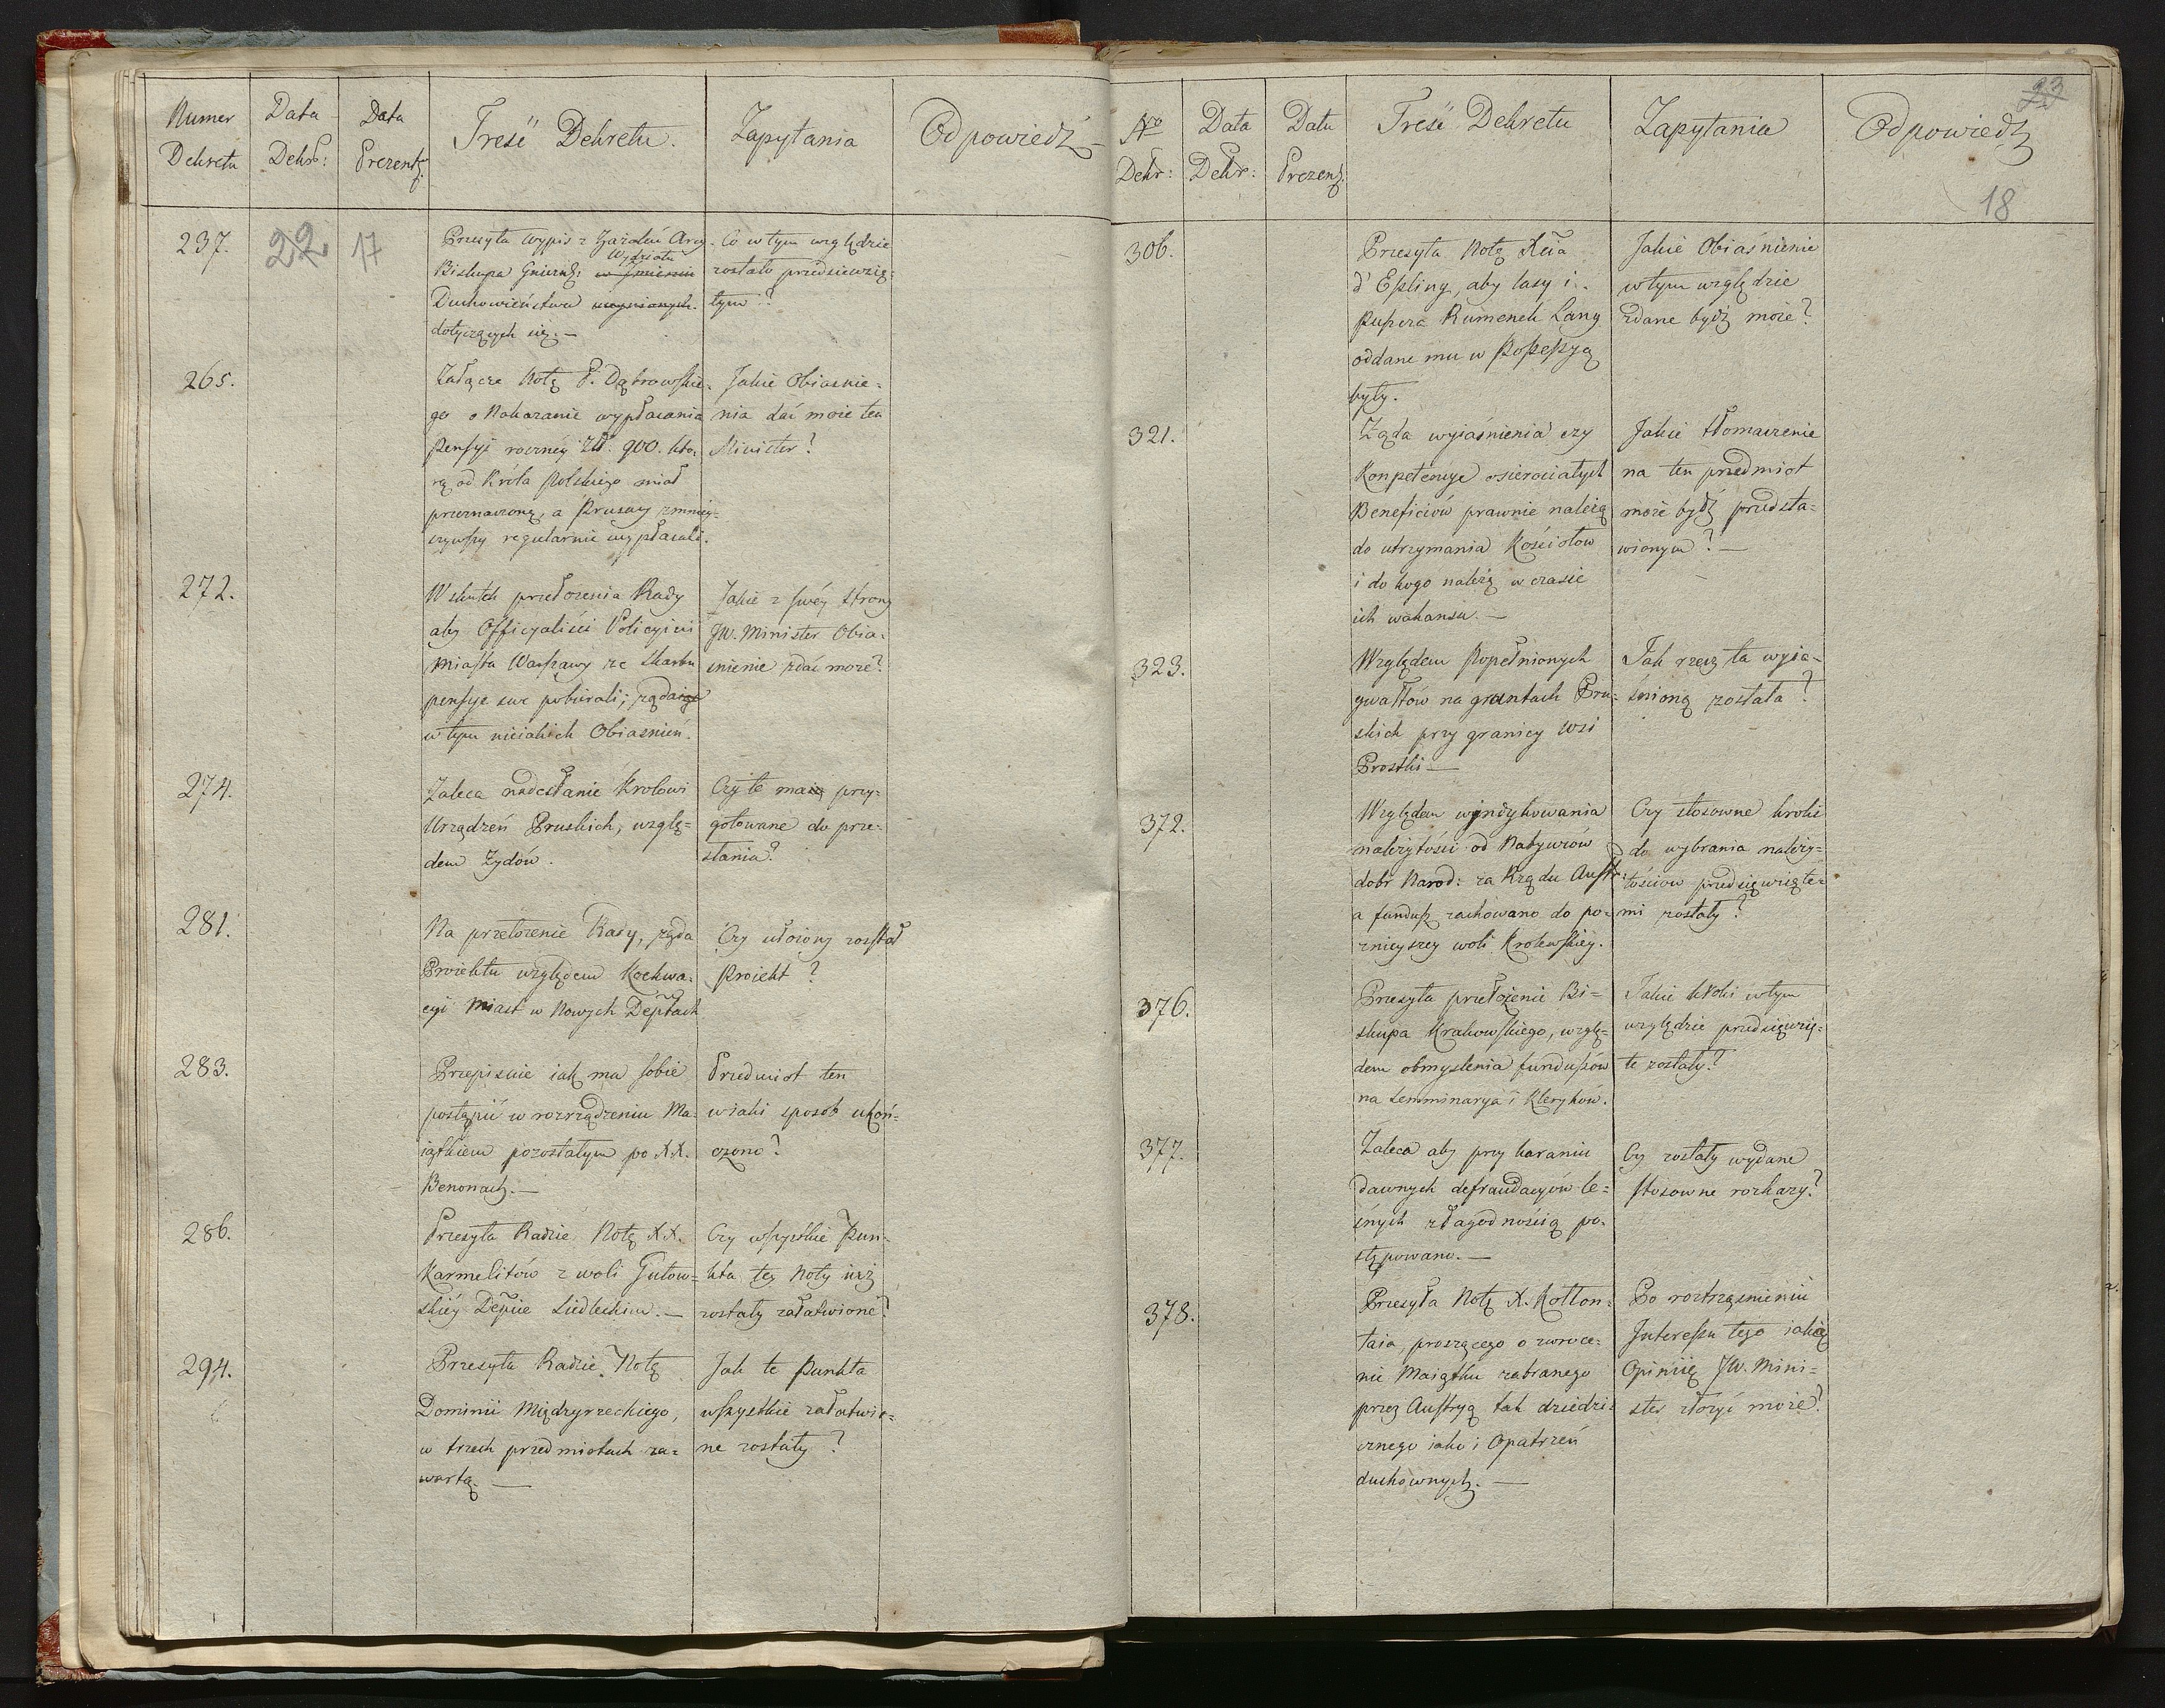 Numer Dekretu
Data Dekr:
Data Prezent:
Treść Dekretu.
Zapytania
Odpowiedź
237.
22
17
Przesyła Wypis z Zażaleń Arcy-
Biskupa Gnieźń: Wydziału
Duchowieństwa
dotyczących się. —
Co w tym względzie
zostało przedsiewzię-
tym?
265.
Załącza Notę P. Dąbrowskie-
go o Nakazanie wypłacania
Pensyi roczney Zł. 900. któ-
rą od Króla Polskiego miał
przeznaczoną, a Prusacy zmniey-
szywszy regularnie wypłacali.
Jakie Obiaśnie-
nia dać może ten
Minister?
272.
W skutek przełożenia Rady
aby Officyaliści Policyini
Miasta Warszawy ze Skarbu
pensye swe pobierali; żądaiąc
w tym nieiakich Obiaśnień.
Jakie z swéy strony
JW. Minister Obia-
śnienie zdać może?
274.
Zaleca nadesłanie Krolowi
Urządzeń Pruskich, wzglę-
dem Żydów.
Czy te maią przy-
gotowane do prze-
słania?
281.
Na przełożenie Rady, żąda
Proiektu względem Koekwa-
cyi Miast w Nowych Deptach
Czy ułożony został
Proiekt?
283.
Przepisuie iak ma sobie
postąpić w rozrządzeniu Ma-
iątkiem pozostałym po XX.
Benonach. —
Przedmiot ten
w iaki sposób ukoń-
czono?
286.
Przesyła Radzie Notę XX.
Karmelitów z woli Gułow-
skiéy Depcie Siedleckim. —
Czy wszystkie Pun-
kta tey Noty iuż
zostały załatwione?
294.
Przesyła Radzie Notę
Dominii Międzyrzeckiego,
w trzech przedmiotach za-
wartą. —
Jak te Punkta
wszystkie załatwio-
ne zostały?
23
18
Nro Dekr:
Data Dekr:
Data Prezent:
Treść Dekretu
Zapytania
Odpowiedź
306.
Przesyła Notę Xcia
d'Esling, aby lasy i
Puszcza Rumenek Lang
oddane mu w Possessyą
były.
Jakie Obiaśnienie
w tym względzie
zdane bydź może?
321.
Żąda wyiaśnienia czy
Kompetencye osierociałych
Beneficiów prawnie należą
do utrzymania Kościołow
i do kogo należą w czasie
ich wakansu. —
Jakie tłomaczenie
na ten przedmiot
może bydź przedsta-
wionym? —
323.
Względem Popełnionych
gwałtów na gruntach Pru-
skich przy granicy Wsi
Prostki —
Jak rzecz ta wyia-
śnioną została?
372.
Względem windykowania
należytości od Nabywców
dobr Narod: za Rządu Austr:
a fundusz zachowano do po-
znieyszey woli Krolewskiéy.
Czy stosowne kroki
do wybrania należy-
tościow przedsięwzięte-
mi zostały?
376.
Przesyła przełożenie Bi-
skupa Krakowskiego, wzglę-
dem obmyslenia funduszów
na Semminarya i Kleryków.
Jakie kroki w tym
względzie przedsięwzię-
te zostały?
377.
Zaleca aby przy karaniu
dawnych defraudacyów le-
śnych z łagodnością po-
stępowano. —
Czy zostały wydane
stosowne rozkazy?
378.
Przesyła Notę X. Kołłon-
taia, proszącego o zwroce-
nie Maiątku zabranego
przez Austryą tak dziedzi-
cznego iako i Opatrzeń
duchownych. —
Po roztrząśnieniu
Interessu tego iaką
Opiniię JW. Mini-
ster złożyć może?